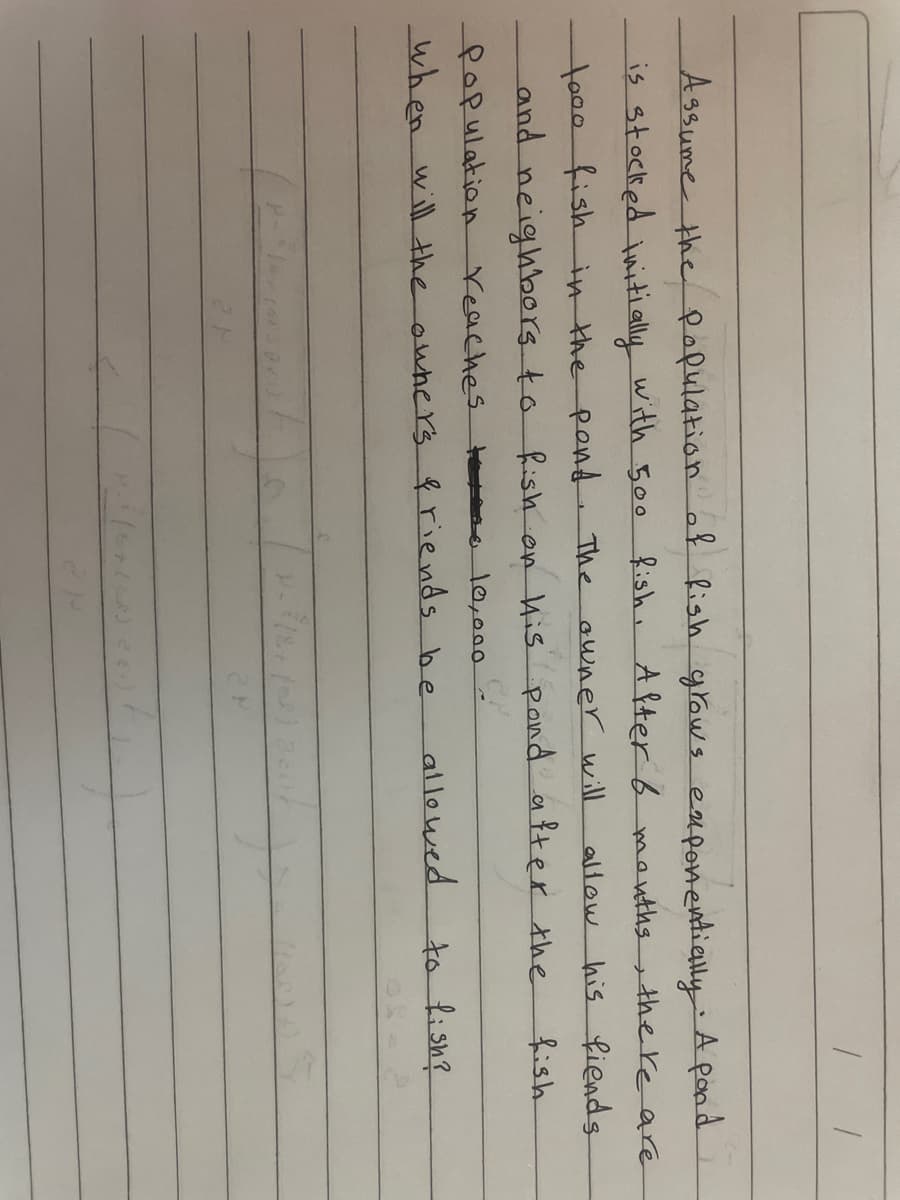 Assume the population of fish grows exponentially. A pond
is stocked initially with 500 fish. After 6 months, there are
1000 fish in the pond. The owner will allow his fiends
and neighbors to fish on his pond after the fish
population reaches 10,000.
when will the owner's friends be allowed to fish?